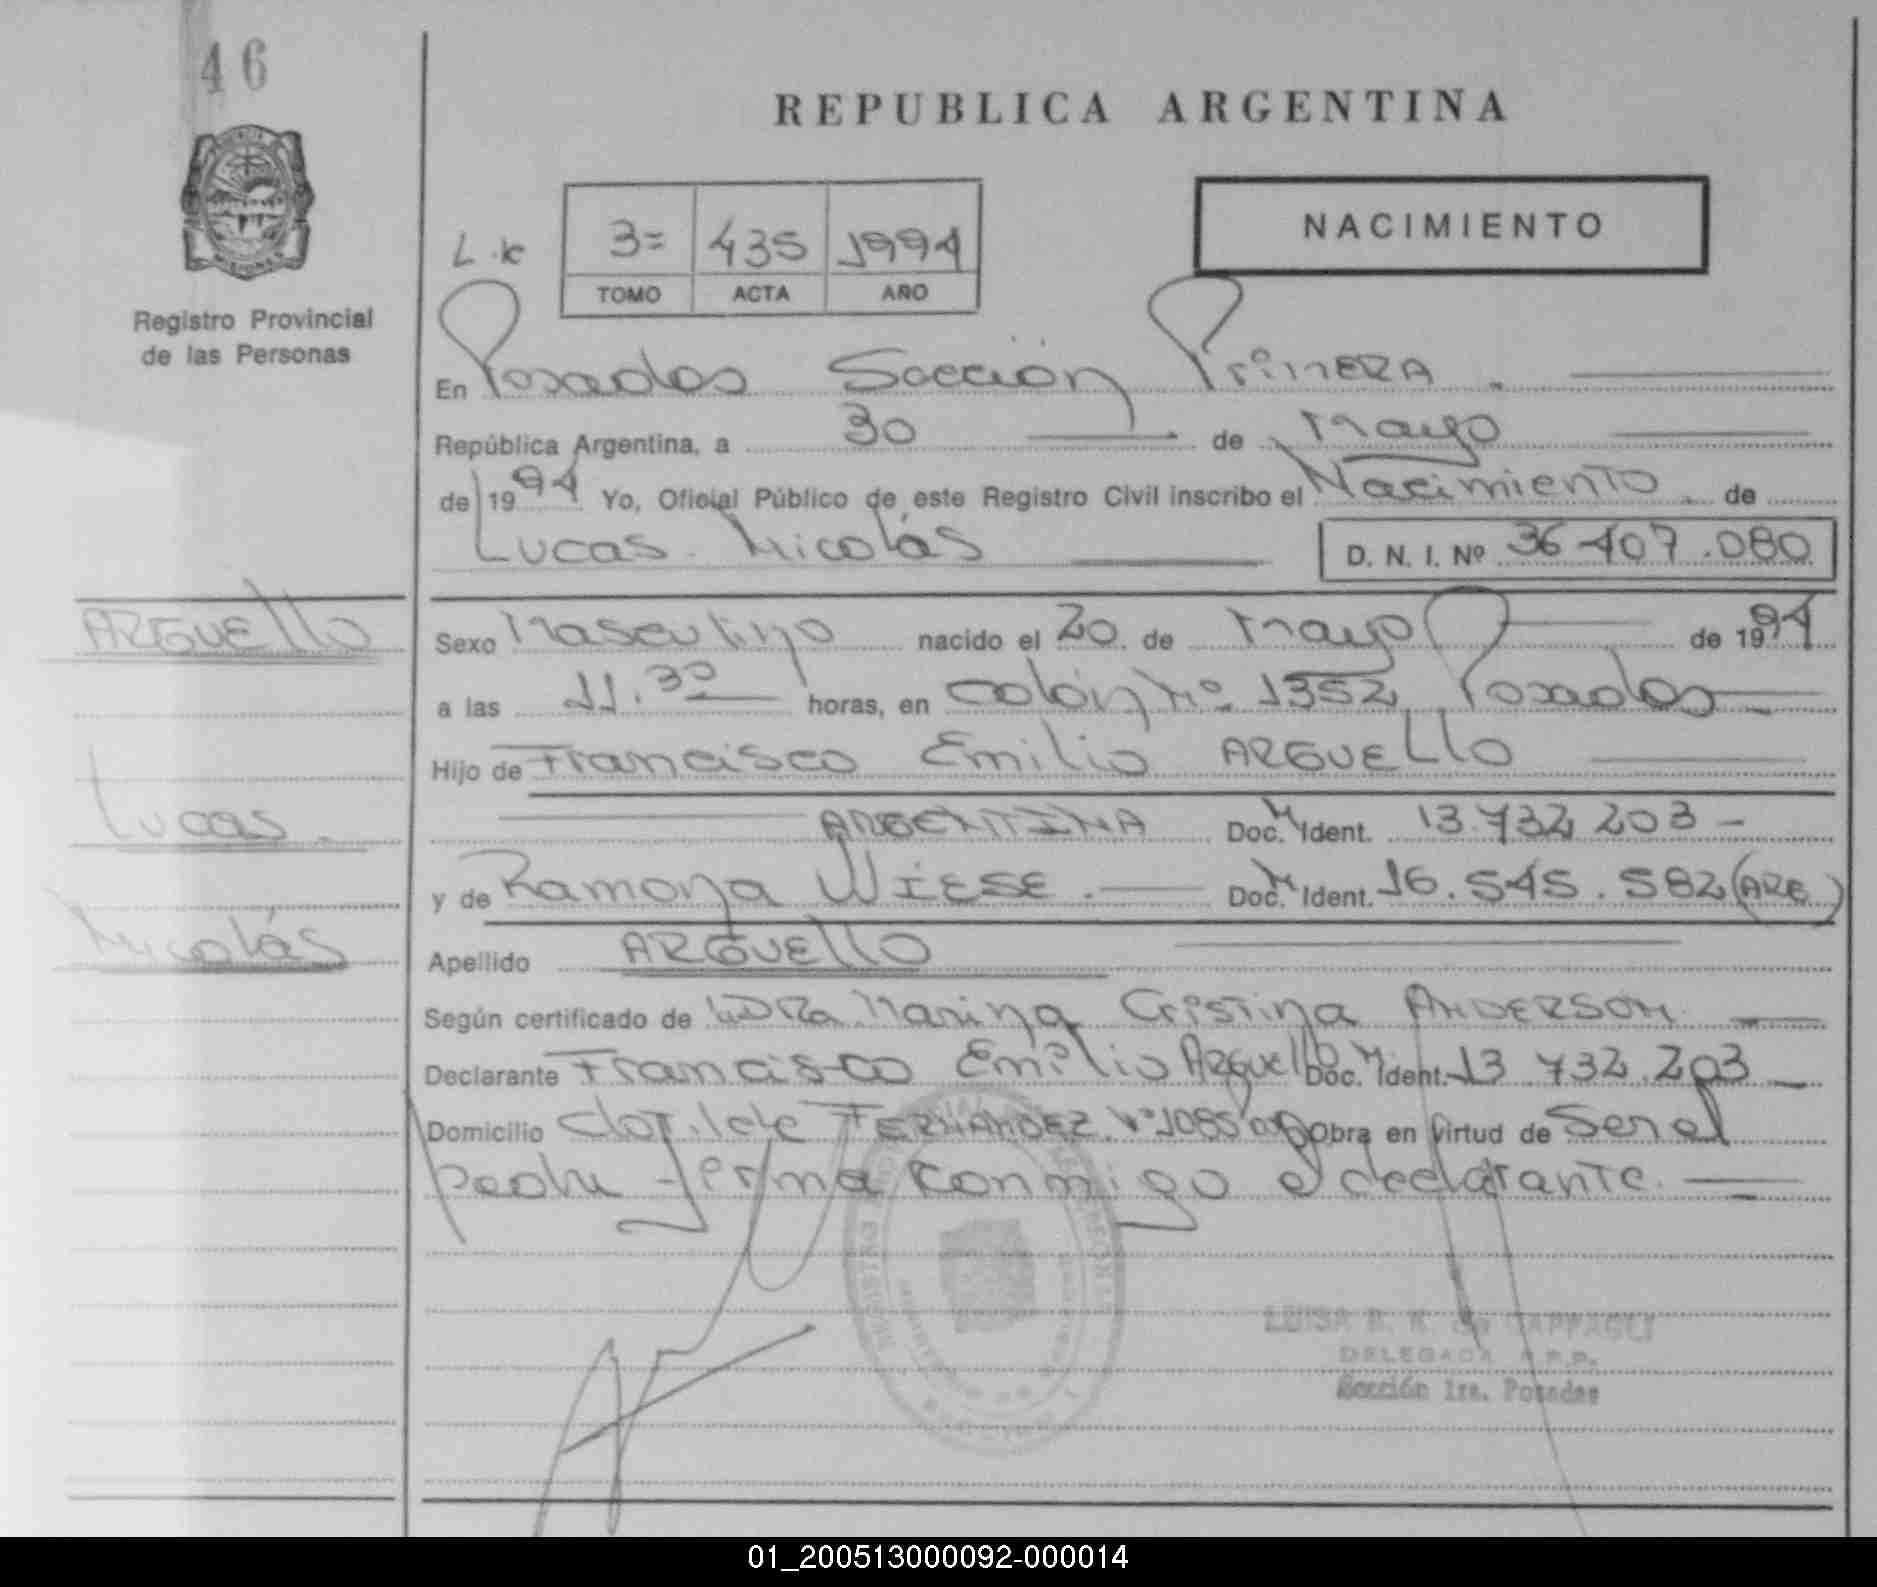 46
REPUBLICA ARGENTINA
NACIMIENTO
3= 435 1994
TOMO ACTA AÑO
Registro Provincial
de las Personas
En Posadas Sección Primera.
República Argentina, a 30 de Mayo
de 1994 Yo, Oficial Público de este Registro Civil inscribo el Nacimiento de
Lucas Nicolás
D. N. I. Nº 36.407.080
ARGUEllO
Sexo Masculino nacido el 20 de Mayo de 1994
a las 11.30 horas, en Colón Nº 1352 Posadas
Hijo de Francisco Emilio ARGUELlO
Lucas.
ARGENTINA Doc. M Ident. 13.732 203
y de Ramona WIESE. Doc. M Ident. 16.545.582 (ARG)
Nicolás
Apellido ARGUEllO
Según certificado de la DRa. Marina Cristina ANDERSON
Declarante Francisco Emilio Arguello Doc. M Ident. 13 732.203
Domicilio Clotilde FERNANDEZ Nº 1085 Obra en virtud de Ser el
padre firma conmigo el declarante.
LUISA B. K. de CAPPAGLI
DELEGADA R.P.P.
Sección 1ra. Posadas
01_200513000092-000014